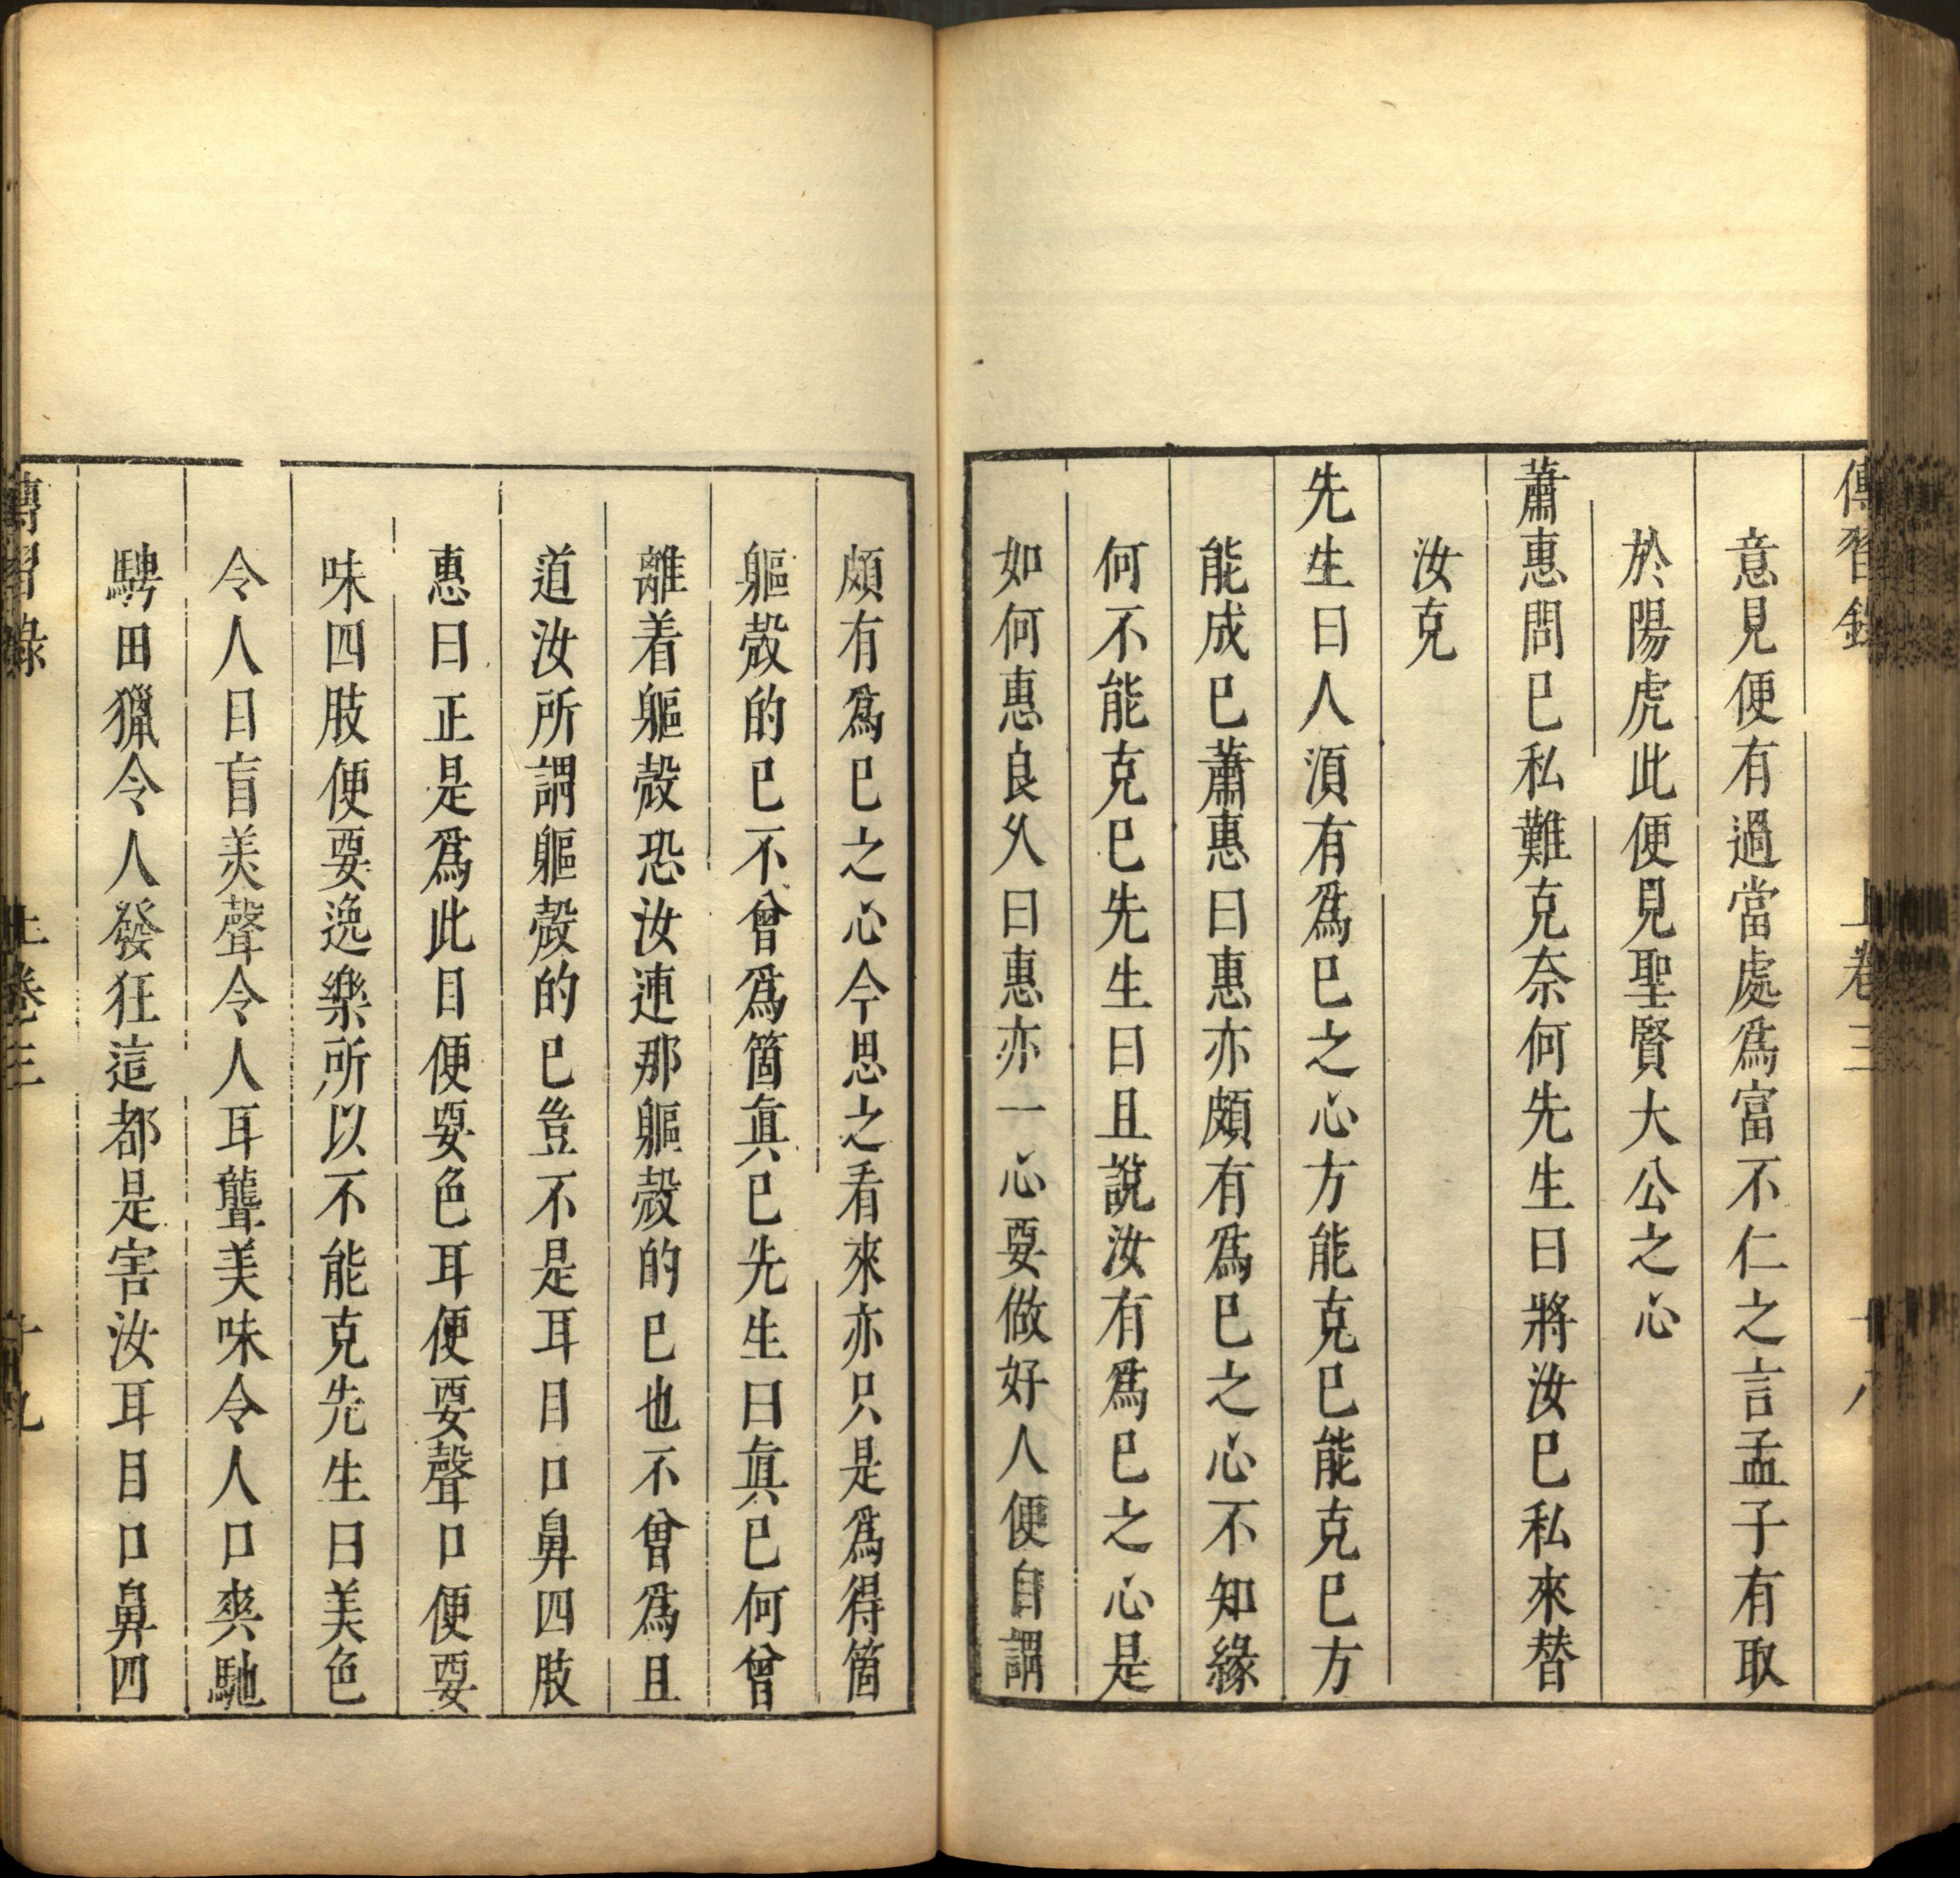 傳習錄 上卷三 十八
意見便有過當處爲富不仁之言孟子有取
於陽虎此便見聖賢大公之心
蕭惠問巳私難克奈何先生曰將汝巳私來替
汝克
先生曰人湏有爲巳之心方能克巳能克巳方
能成巳蕭惠曰惠亦頗有爲巳之心不知緣
何不能克巳先生曰且說汝有爲巳之心是
如何惠良久曰惠亦一心要做好人便自謂
頗有爲巳之心今思之看來亦只是爲得箇
軀殼的巳不曾爲箇眞巳先生曰眞巳何曾
離着軀殼恐汝連那軀殼的巳也不曾爲且
道汝所謂軀殼的巳豈不是耳目口鼻四肢
惠曰正是爲此目便要色耳便要聲口便要
味四肢便要逸樂所以不能克先生曰美色
令人目盲美聲令人耳聾美味令人口爽馳
騁田獵令人發狂這都是害汝耳目口鼻四
傳習錄 上卷三 十九